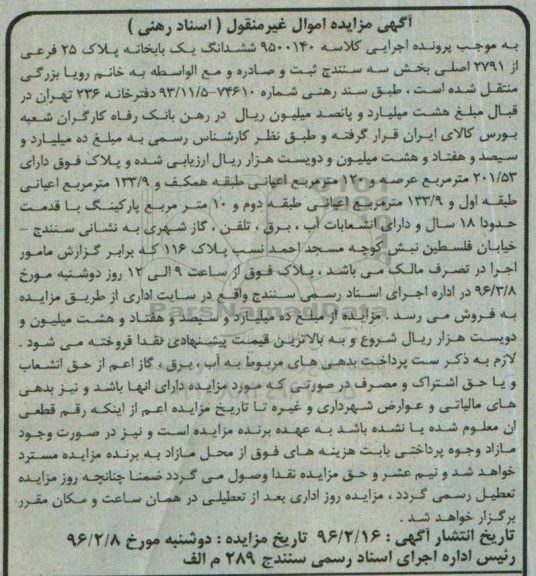 آگهی مزایده اموال غیرمنقول ( اسناد رهنی )
به موجب پرونده اجرایی کلاسه ۹۵۰۰۱۴۰ ششدانگ یک بابخانه پلاک ۲۵ فرعی
از ۲۷۹۱ اصلی بخش سه سنندج ثبت و صادره و مع الواسطه به خانم رویا بزرگی
منتقل شده است ، طبق سند رهنی شماره ۷۴۶۱۰-۹۳/۱۱/۵ دفترخانه ۲۳۶ تهران در
قبال مبلغ هشت میلیارد و پانصد میلیون ریال در رهن بانک رفاه کارگران شعبه
بورس کالای ایران قرار گرفته و طبق نظر کارشناس رسمی به مبلغ ده میلیارد و
سیصد و هفتاد و هشت میلیون و دویست هزار ریال ارزیابی شده و پلاک فوق دارای
۲۰۱/۵۳ مترمربع عرصه و ۱۲۰ مترمربع اعیانی طبقه همکف و ۱۳۳/۹ مترمربع اعیانی
طبقه اول و ۱۳۳/۹ مترمربع اعیانی طبقه دوم و ۱۰ متر مربع پارکینگ با قدمت
حدودا ۱۸ سال و دارای انشعابات آب ، برق ، تلفن ، گاز شهری به نشانی سنندج -
خیابان فلسطین نبش کوچه مسجد احمد نسب پلاک ۱۱۶ که برابر گزارش مامور
اجرا در تصرف مالک می باشد ، پلاک فوق از ساعت ۹ الی ۱۲ روز دوشنبه مورخ
۹۶/۳/۸ در اداره اجرای اسناد رسمی سنندج واقع در سایت اداری از طریق مزایده
به فروش می رسد . مزایده از مبلغ ده میلیارد و سیصد و هفتاد و هشت میلیون و
دویست هزار ریال شروع و به بالاترین قیمت پیشنهادی نقدا فروخته می شود .
لازم به ذکر ست پرداخت بدهی های مربوط به آب ، برق ، گاز اعم از حق انشعاب
و یا حق اشتراک و مصرف در صورتی که مورد مزایده دارای انها باشد و نیز بدهی
های مالیاتی و عوارض شهرداری و غیره تا تاریخ مزایده اعم از اینکه رقم قطعی
ان معلوم شده یا نشده باشد به عهده برنده مزایده است و نیز در صورت وجود
مازاد وجوه پرداختی بابت هزینه های فوق از محل مازاد به برنده مزایده مسترد
خواهد شد و نیم عشر و حق مزایده نقدا وصول می گردد ضمنا چنانچه روز مزایده
تعطیل رسمی گردد ، مزایده روز اداری بعد از تعطیلی در همان ساعت و مکان مقرر
برگزار خواهد شد .
تاریخ انتشار آگهی : ۹۶/۲/۱۶ تاریخ مزایده : دوشنبه مورخ ۹۶/۲/۸
رئیس اداره اجرای اسناد رسمی سنندج ۲۸۹ م الف
ParsNamadData